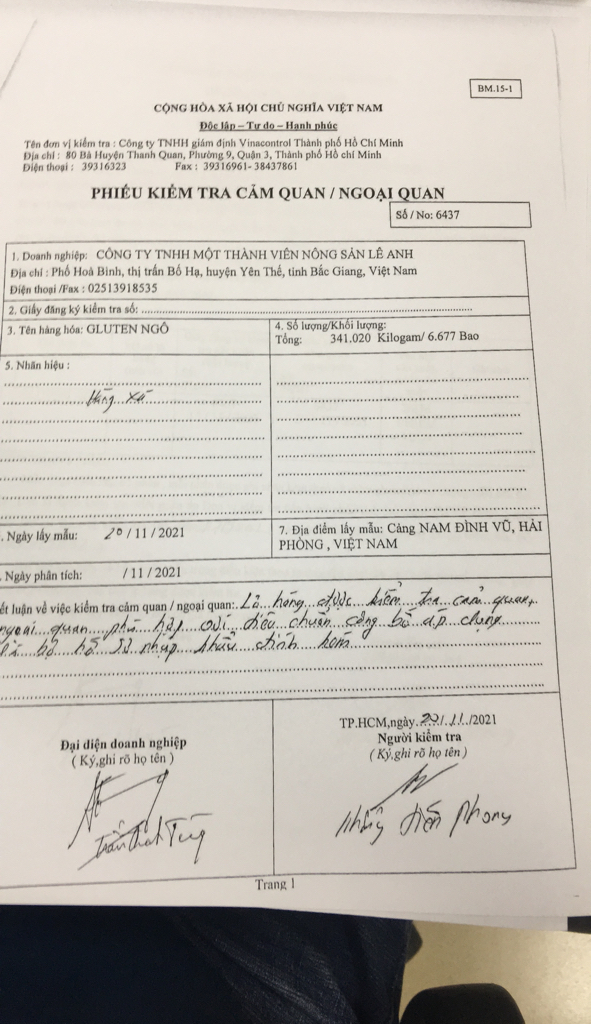 BM.15-1
CỘNG HÒA XÃ HỘI CHỦ NGHĨA VIỆT NAM
Độc lập – Tự do – Hạnh phúc
Tên đơn vị kiểm tra : Công ty TNHH giám định Vinacontrol Thành phố Hồ Chí Minh
Địa chỉ : 80 Bà Huyện Thanh Quan, Phường 9, Quận 3, Thành phố Hồ chí Minh
Điện thoại : 39316323 Fax : 39316961- 38437861
PHIẾU KIỂM TRA CẢM QUAN / NGOẠI QUAN
Số / No: 6437
1. Doanh nghiệp: CÔNG TY TNHH MỘT THÀNH VIÊN NÔNG SẢN LÊ ANH
Địa chỉ : Phố Hoà Bình, thị trấn Bố Hạ, huyện Yên Thế, tỉnh Bắc Giang, Việt Nam
Điện thoại /Fax : 02513918535
2. Giấy đăng ký kiểm tra số:
3. Tên hàng hóa: GLUTEN NGÔ
4. Số lượng/Khối lượng:
Tổng: 341.020 Kilogam/ 6.677 Bao
5. Nhãn hiệu :
Hàng xá
. Ngày lấy mẫu: 20 / 11 / 2021
7. Địa điểm lấy mẫu: Cảng NAM ĐÌNH VŨ, HẢI
PHÒNG , VIỆT NAM
Ngày phân tích: / 11 / 2021
ết luận về việc kiểm tra cảm quan / ngoại quan: Lô hàng được kiểm tra cảm quan,
ngoại quan phù hợp với tiêu chuẩn công bố áp dụng
và bộ hồ sơ nhập khẩu đính kèm
TP.HCM,ngày 20/11/2021
Đại diện doanh nghiệp
( Ký,ghi rõ họ tên )
Người kiểm tra
( Ký,ghi rõ họ tên )
Tiến Phong
Trang 1